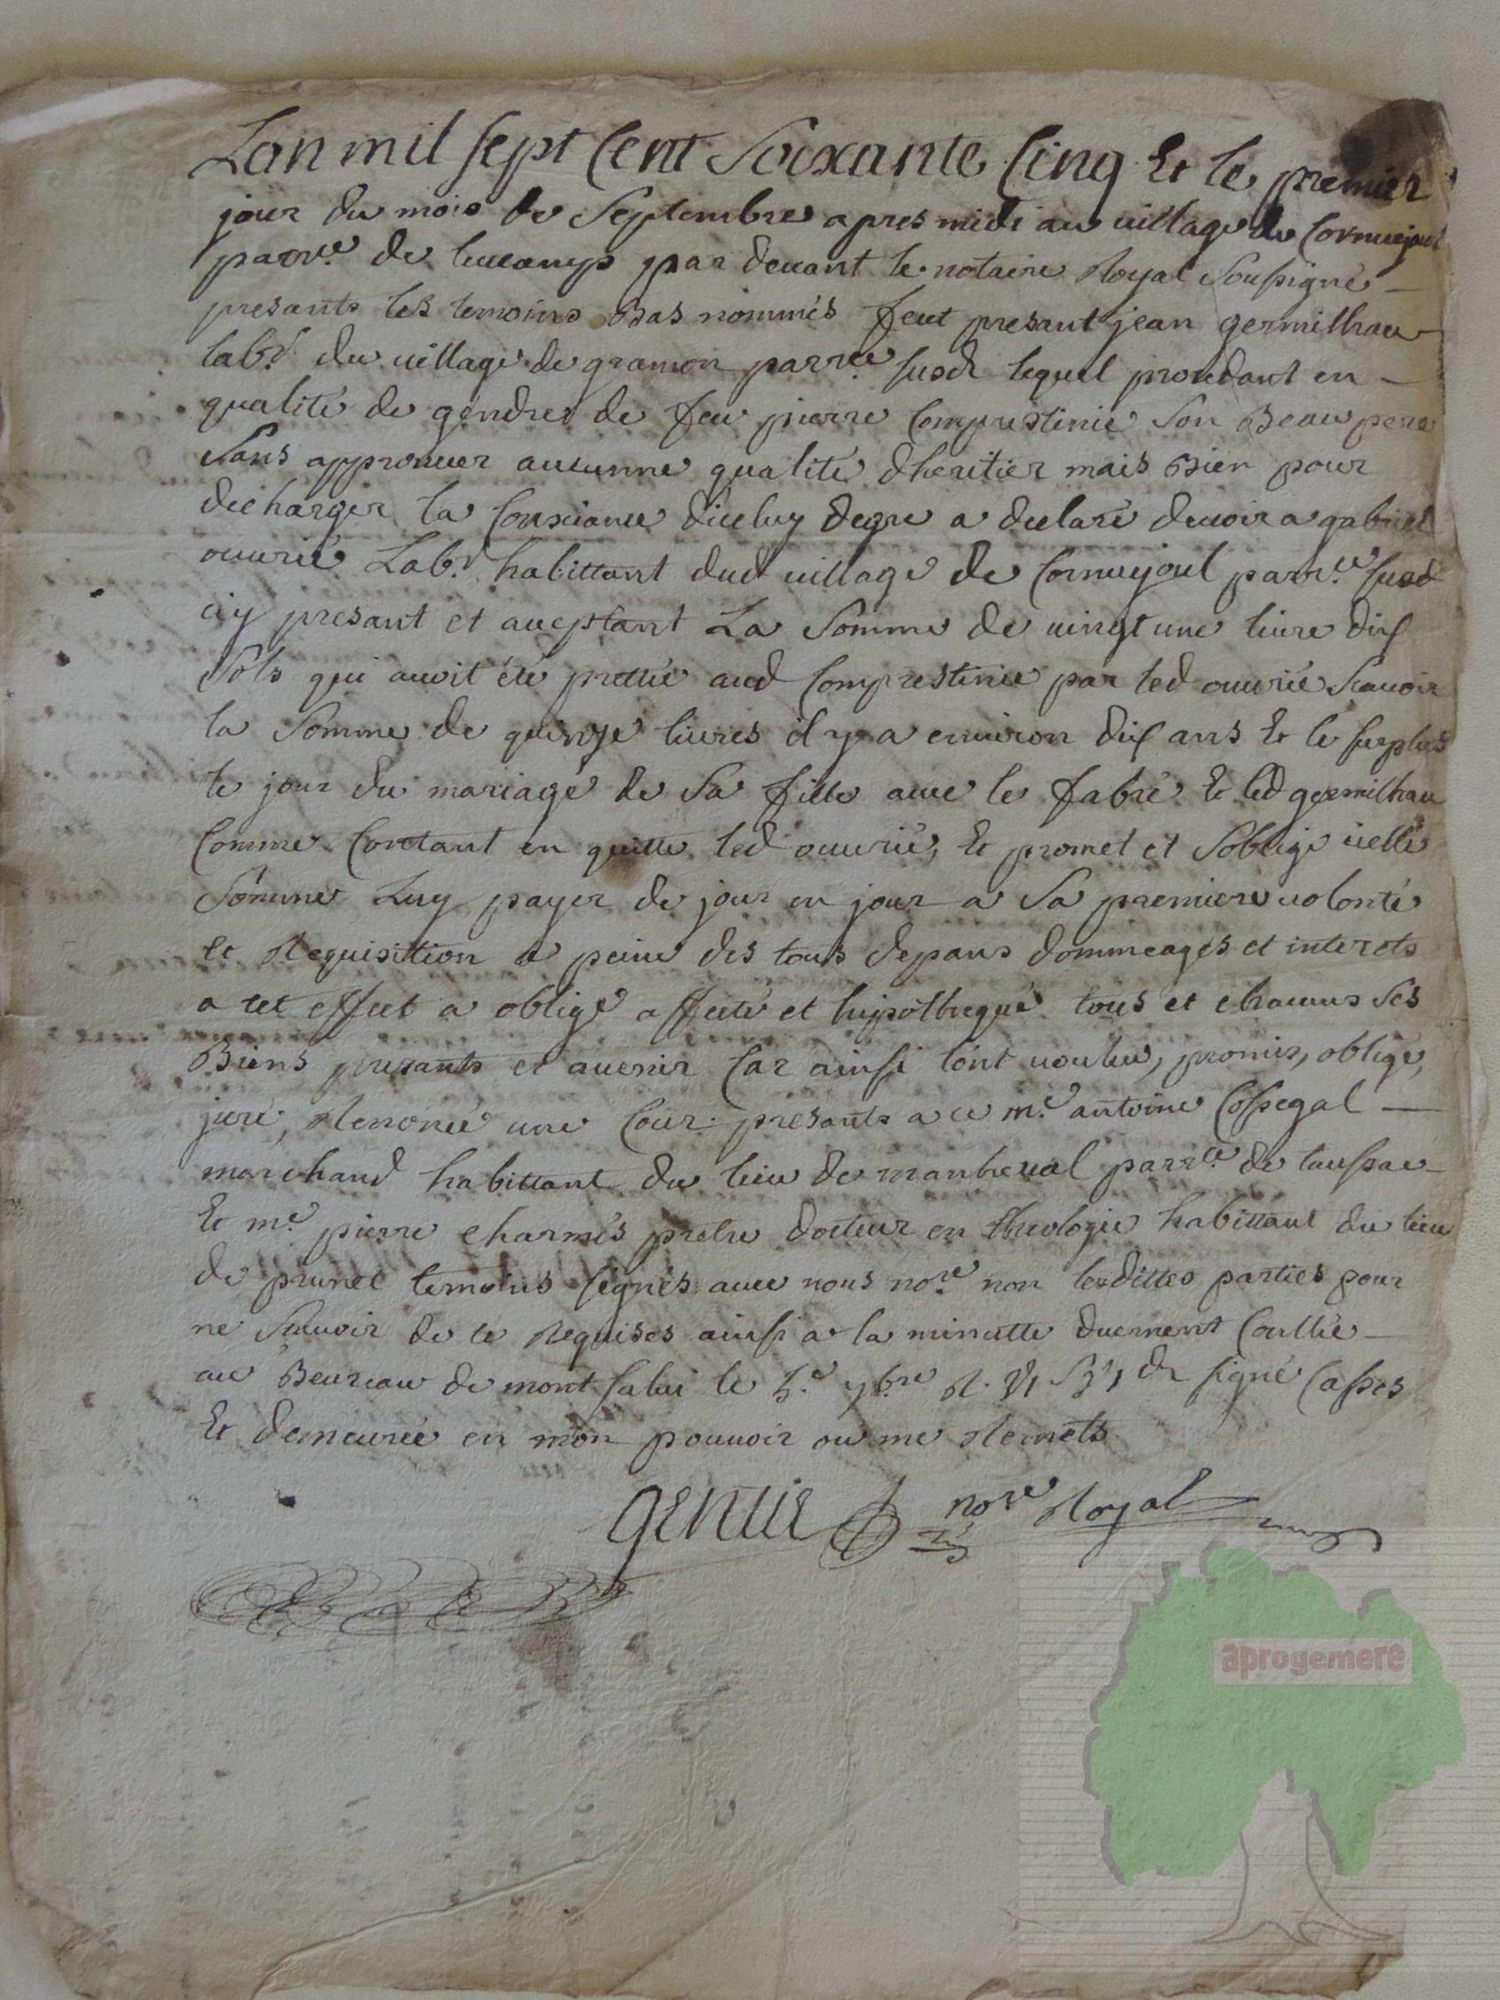 Lan mil sept Cent Soixante Cinq Et le premier
jour du mois de Septembre apres midi au village de Cornuejoul
parr.e de leucamp par devant le notaire Royal Soussigné
presants les temoins Bas nommés feut presant jean germilhau
lab.r du village de gramon parr.ce susd lequel procedant en
qualité de gendre de feu pierre Comprestinie Son Beau pere
Sans approuver aucunne qualité dheritier mais Bien pour
decharger la Consciance diceluy degre a declaré devoir a gabriel
ouvrié Lab.r habittant dud village de Cornuejoul parr.ce susd
icy presant et aceptant La Somme de vingt une livre dix
Sols qui avoit été prettée aud Comprestinie par led ouvrié Scavoir
la Somme de quinze livres il y a environ dix ans Et le surplus
le jour du mariage de Sa fille avec le fabre Et led germilhau
Comme Contant en quitte led ouvrié, Et promet et Soblige icelle
Somme Luy payer de jour en jour a Sa premiere volonté
et Requisition a peine des tous depans dommeages et interets
a cet effect a obligé affecté et hipotheque tous et chacuns Ses
Biens presants et avenir Car ainsi lont voulu, promis, obligé,
juré, Renoncé une Cour: presants a ce m.e antoine Cossegal
marchand habittant du lieu de manheval parr.ce de taussac
Et m.e pierre charmés pretre docteur en theologie habittant du lieu
de prunet temoins signés avec nous no.re non lesdittes parties pour
ne Scavoir de ce Requises ainsi a la minutte duement Conllée
au Beureau de montsalvi le 7.bre R. signé Casses
Et demeurée en mon pouvoir ou me Remets
gentie no.re Royal
aprogemere